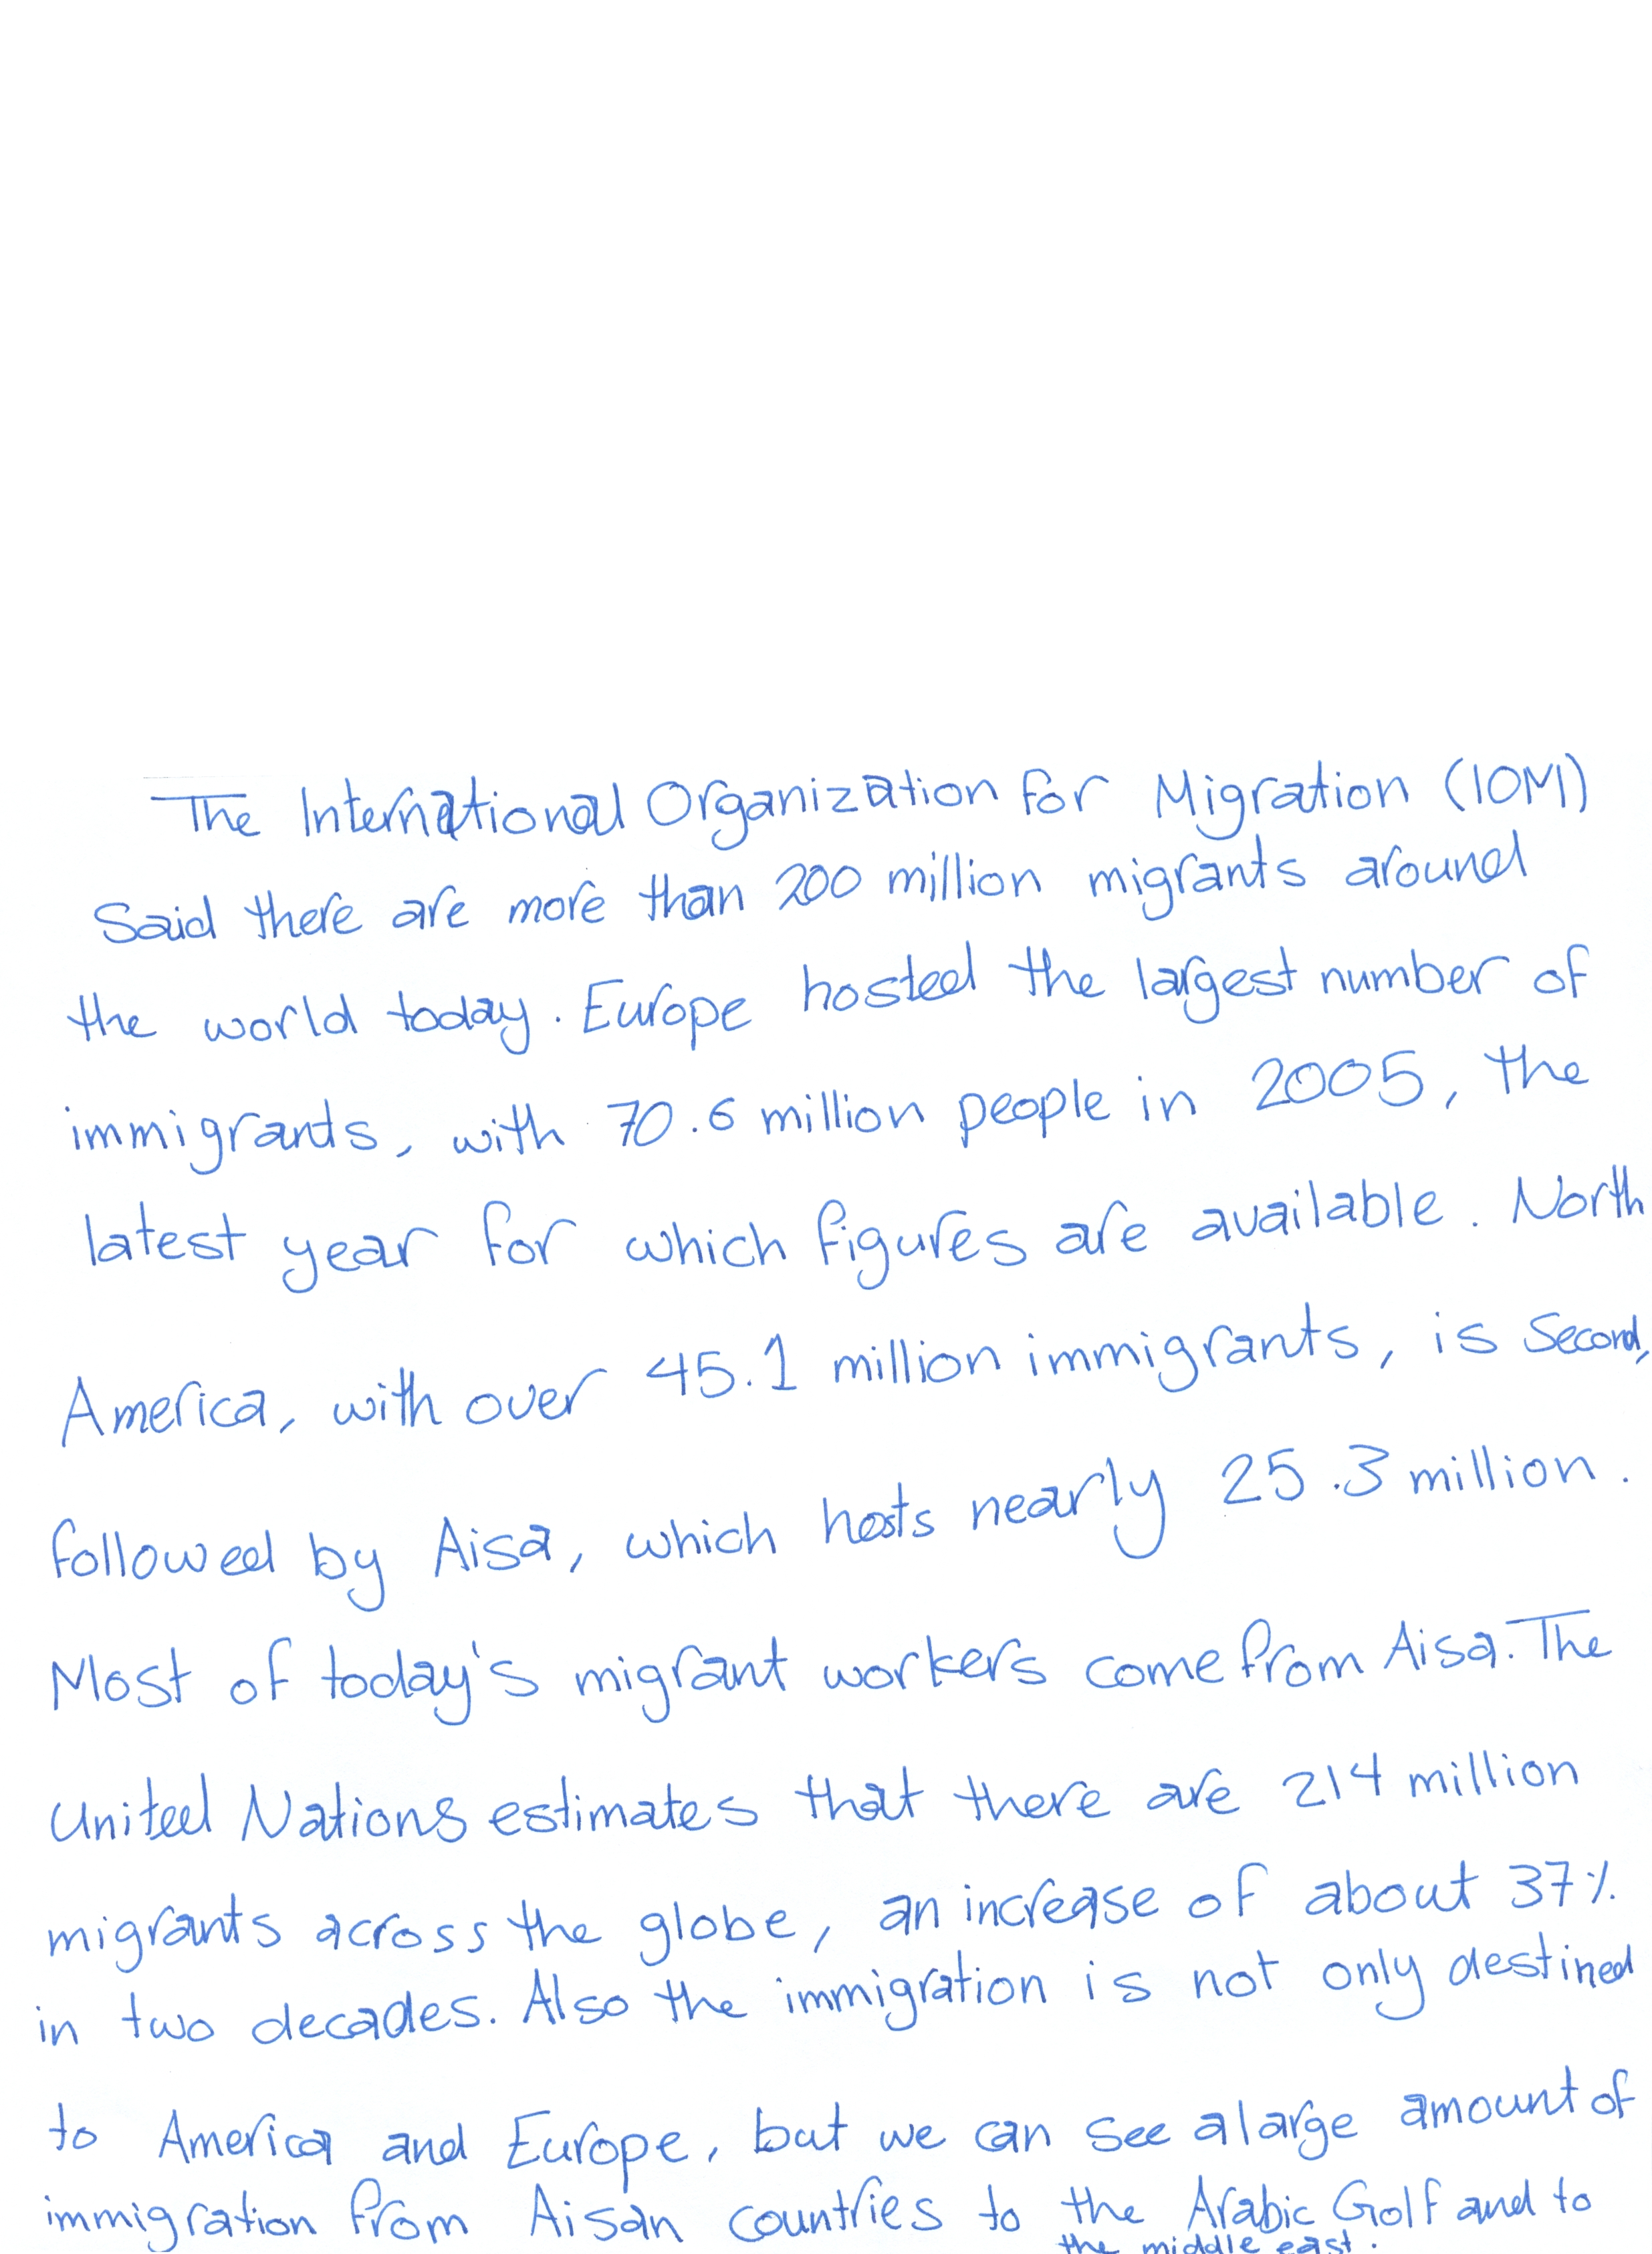 The International Organization for Migration (IOM)
Said there are more than 200 million migrants around
the world today. Europe hosted the largest number of
immigrants, with 70.6 million people in 2005, the
latest year for which figures are available. North
America, with over 45.1 million immigrants, is Second,
followed by Aisa, which hosts nearly 25.3 million.
Most of today's migrant workers come from Aisa. The
United Nations estimates that there are 214 million
migrants across the globe, an increase of about 37%
in two decades. Also the immigration is not only destined
to America and Europe, but we can see a large amount of
immigration from Aisan countries to the Arabic Golf and to
the middle east.